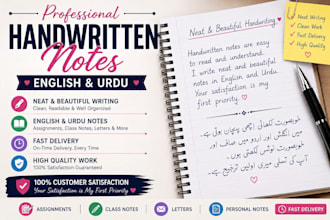 Professional
HANDWRITTEN
Notes
ENGLISH & URDU
NEAT & BEAUTIFUL WRITING
Clean, Readable & Well Organized
ENGLISH & URDU NOTES
Assignments, Class Notes, Letters & More
FAST DELIVERY
On-Time Delivery, Every Time
HIGH QUALITY WORK
100% Satisfaction Guaranteed
100% CUSTOMER SATISFACTION
Your Satisfaction is My First Priority
Neat & Beautiful Handwriting
Handwritten notes are easy
to read and understand.
I write neat and beautiful
notes in English and Urdu.
Your satisfaction is my
first priority.
خوبصورت لکھائی اچھی پہچان ہوتی ہے۔
میں انگلش اور اردو میں صاف اور
خوبصورت نوٹس لکھتی ہوں۔
آپ کی تسلی میری اولین ترجیح ہے۔
Neat Writing
Clean Work
Fast Delivery
High Quality
ASSIGNMENTS
CLASS NOTES
LETTERS
PERSONAL NOTES
FAST DELIVERY